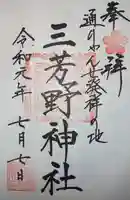 奉拝
通りゃんせ発祥の地
三芳野神社
令和元年
七月七日